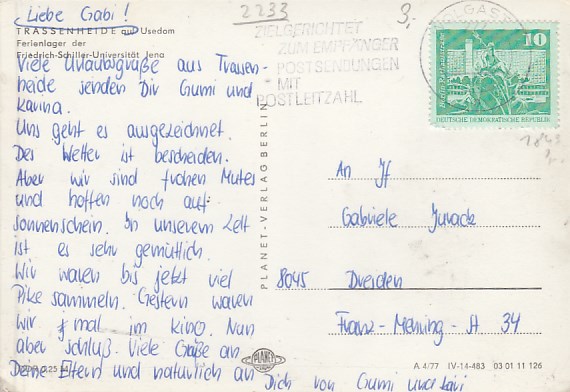 Liebe Gabi!
2233
3,-
TRASSENHEIDE auf Usedom
Ferienlager der
Friedrich-Schiller-Universität Jena
Viele Urlaubsgrüße aus Trassen-
heide senden Dir Gumi und
Karina.
Uns geht es ausgezeichnet.
Das Wetter ist bescheiden.
Aber wir sind frohen Mutes
und hoffen noch auf
Sonnenschein. In unserem Zelt
ist es sehr gemütlich.
Wir waren bis jetzt viel
Pilze sammeln. Gestern waren
wir mal im Kino. Nun
aber Schluß. Viele Grüße an
Deine Eltern und natürlich an Dich von Gumi und
ZIELGERICHTET
ZUM EMPFÄNGER
POSTSENDUNGEN
MIT
POSTLEITZAHL
10
DEUTSCHE DEMOKRATISCHE REPUBLIK
PLANET-VERLAG BERLIN
An
Gabriele
8045 Dresden
Franz-Mehring-St 34
PLANET
A 4/77 IV-14-483 03 01 11 126